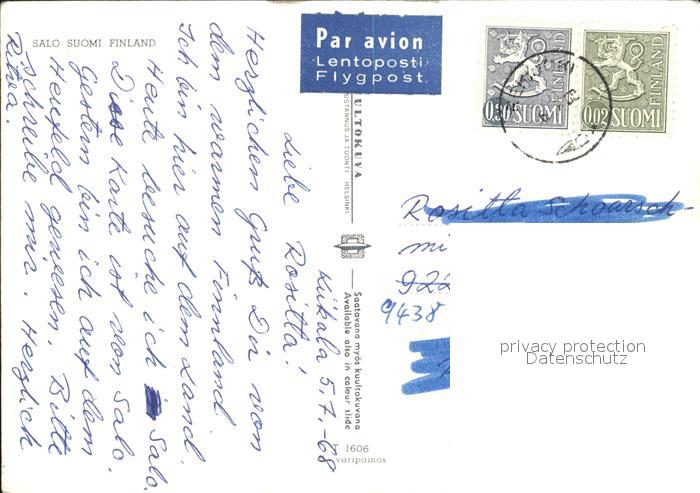 SALO SUOMI FINLAND
Par avion
Lentoposti
Flygpost
0,30 SUOMI
FINLAND
0,02 SUOMI
FINLAND
KUULTOKUVA
KUSTANNUS JA TUONTI HELSINKI
Saatavana myös kuultokuvana
Available also in colour slide
T 1606
Kiikala 5.7.-68
Liebe Rositta!
Herzlichen Gruß Dir von
dem warmen Finnland
Ich bin hier auf dem Land.
Heute besuche ich Salo.
Diese Karte ist von Salo.
Gestern bin ich auf dem
Heufeld gewesen. Bitte
schreibe mir. Herzlich
Ritva.
Rositta Schoarsch-
mi
922
9438
privacy protection
Datenschutz